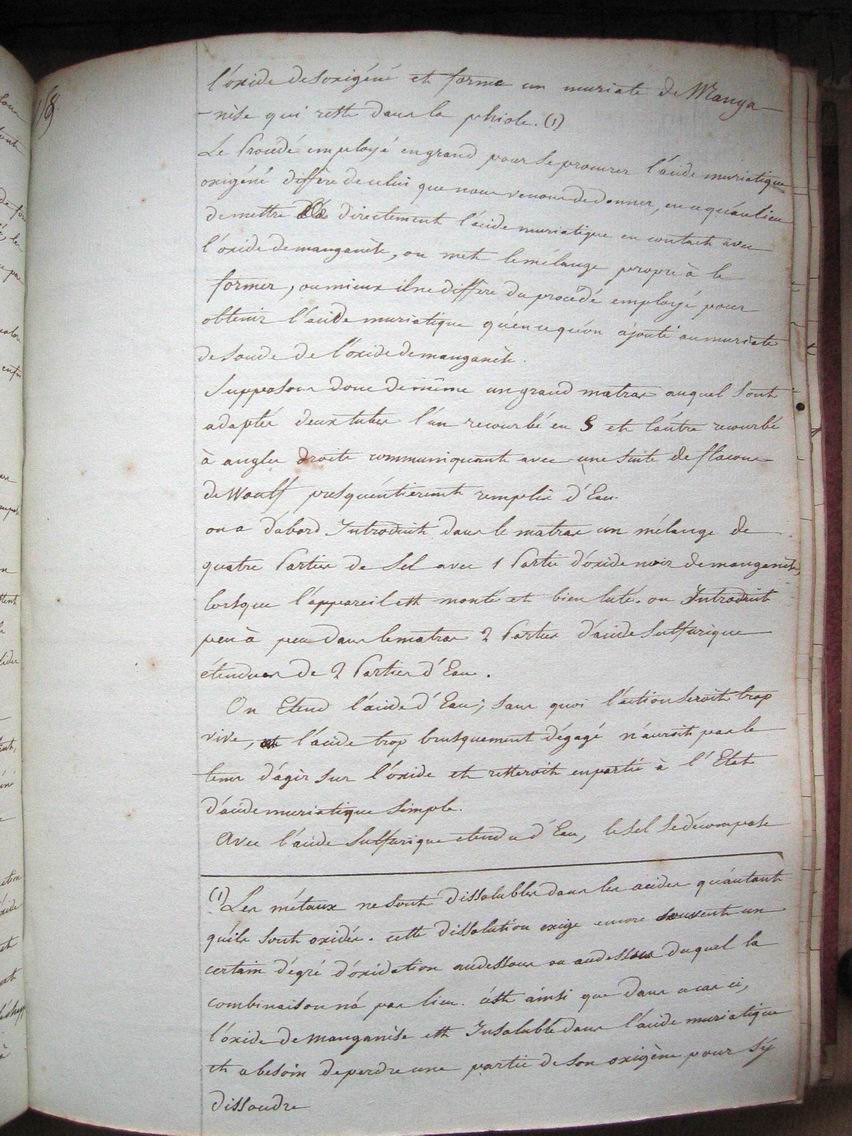 168
l'oxide desoxigéné et forme un muriate de Manga
-nèse qui reste dans la phiole. (1)
Le Procédé employé en grand pour se procurer l'acide muriatique
oxigéné diffère de celui que nous venons de donner, en ce qu'au lieu
de mettre directement l'acide muriatique en contact avec
l'oxide de manganèse, on met le mélange propre à le
former, ou mieux il ne diffère du procédé employé pour
obtenir l'acide muriatique qu'en ce qu'on ajoute au muriate
de soude de l'oxide de manganèse.
Supposons donc de même un grand matras auquel sont
adaptés deux tubes l'un recourbé en S et l'autre recourbé
à angles droits communiquant avec une suite de flacons
de Woulf presqu'entièrement remplis d'Eau.
on a d'abord Introduit dans le matras un mélange de
quatre Parties de Sel avec 1 Partie d'oxide noir de manganèse,
lorsque l'appareil est monté et bien luté. on Introduit
peu à peu dans le matras 2 Parties d'acide Sulfurique
étendues de 2 Parties d'Eau.
On Etend l'acide d'Eau; sans quoi l'action seroit trop
vive, et l'acide trop brusquement dégagé n'auroit pas le
tems d'agir sur l'oxide et resteroit en partie à l'Etat
d'acide muriatique simple.
Avec l'acide Sulfurique etendu d'Eau, le sel se décompose
(1) Les métaux ne sont dissolubles dans les acides qu'autant
qu'ils sont oxidés. cette dissolution exige encore souvent un
certain dégré d'oxidation audessous ou audessus duquel la
combinaison n'a pas lieu. c'est ainsi que dans ce cas ci,
l'oxide de manganèse est Insoluble dans l'acide muriatique
et a besoin de perdre une partie de son oxigène pour s'y
dissoudre